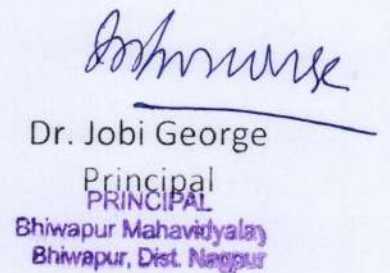 Dr. Jobi George
Principal
PRINCIPAL
Bhiwapur Mahavidyalay
Bhiwapur, Dist. Nagpur